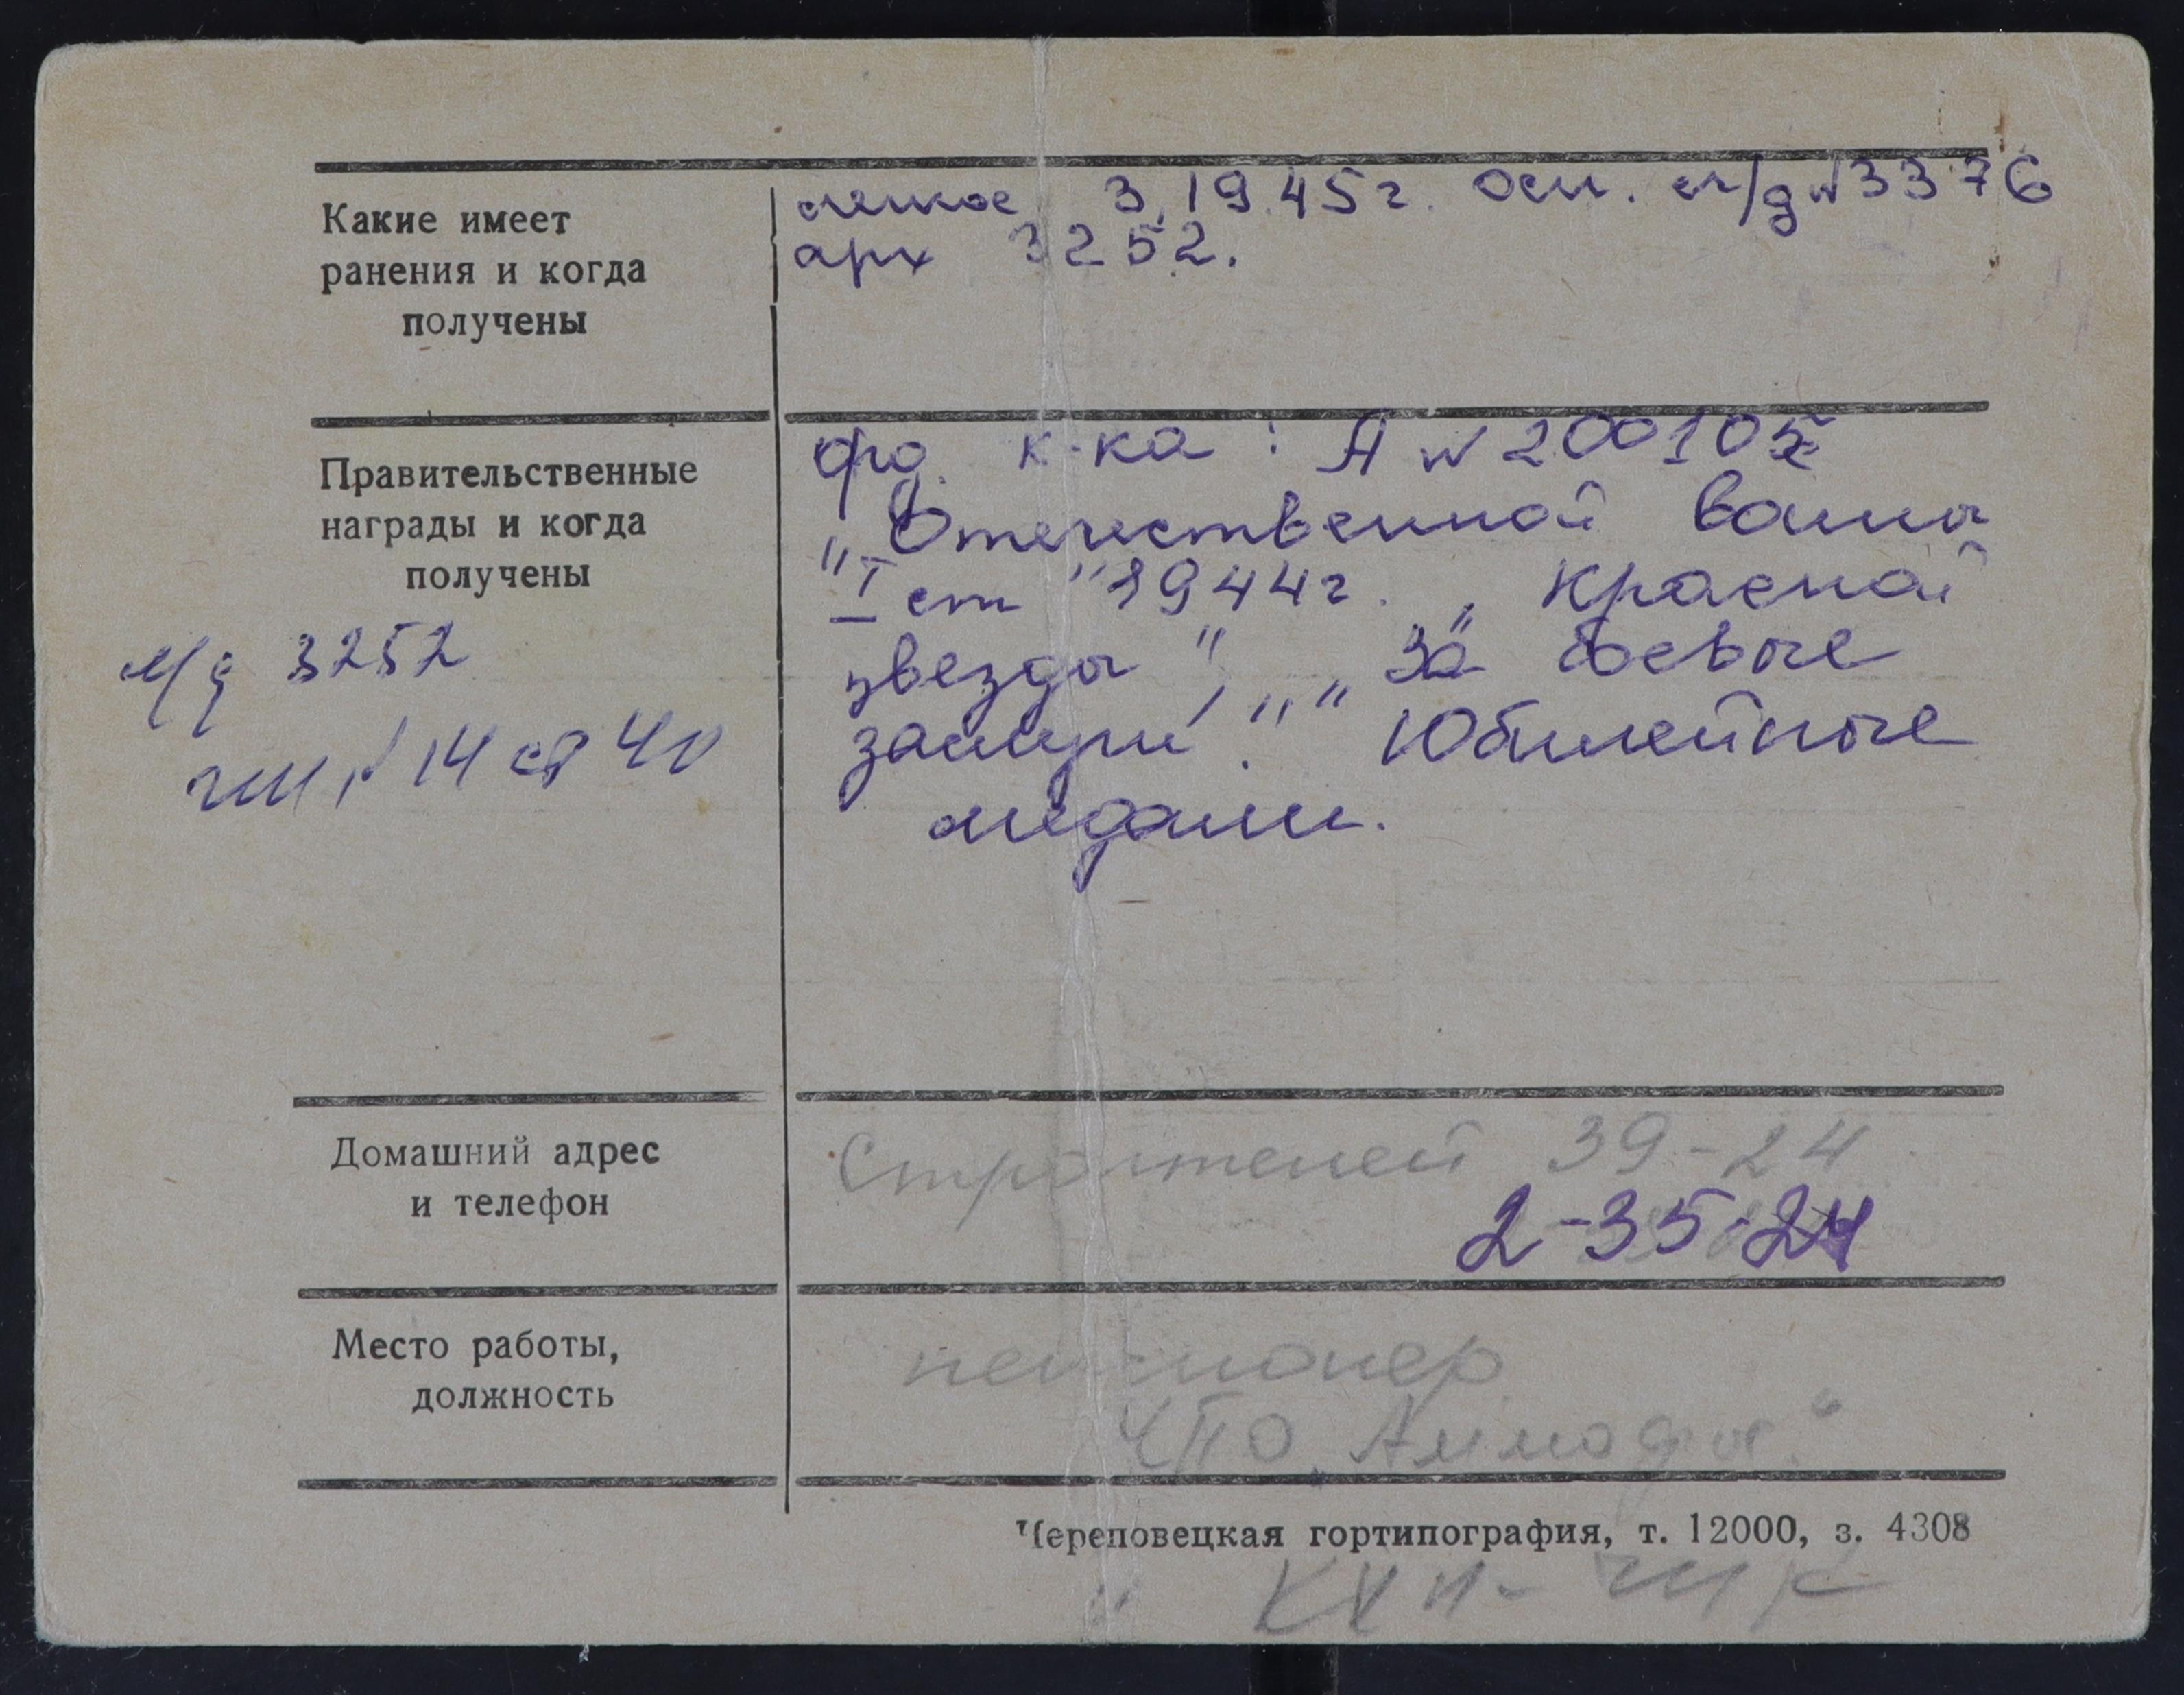 Какие имеет
ранения и когда
получены
легкое 3.1945г. Осн. м/д №3376
арх 3252.
Правительственные
награды и когда
получены
орд. к-ка: А №200105
„Отечественной воины
I ст" 1944г. „Красной
звезды", „За боевые
заслуги". Юбилейные
медали.
м/д 3252
14 40
Домашний адрес
и телефон
Строителей 39-24
2-35-24
Место работы,
должность
пенсионер
ЧПО
Череповецкая гортипография, т. 12000, з. 4308